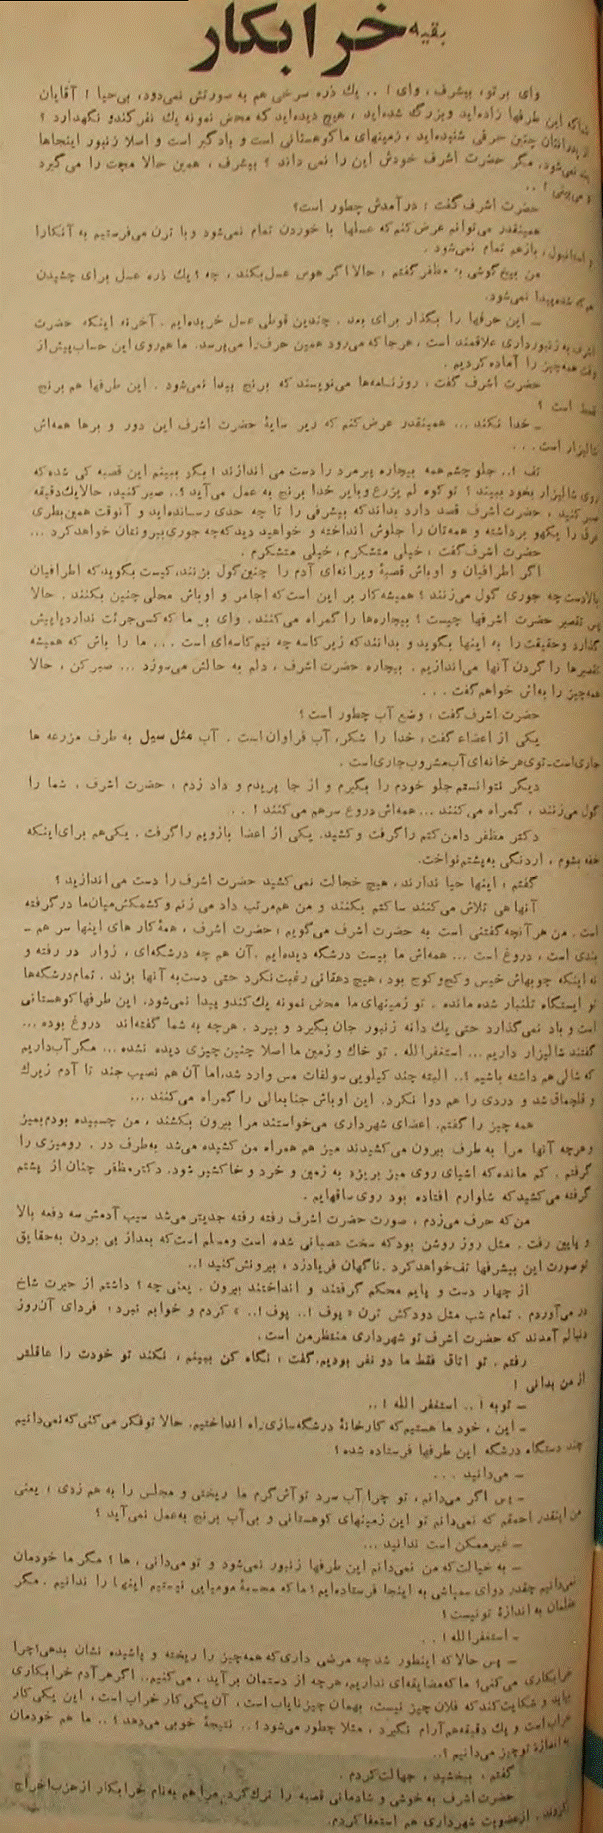 بقیه خرابکار
وای بر تو، بیشرف، وای! .. یك ذره سرخی هم به صورتش نمی‌دود، بی‌حیا! آقایان
این طرفها زاده‌اید و بزرگ شده‌اید، هیچ دیده‌اید که محض نمونه یك نفر کندو نگهدارد؟
از پدرانتان چنین حرفی شنیده‌اید، زمینهای ما کوهستانی است و بادگیر است و اصلا زنبور اینجاها
نمی‌شود. مگر حضرت اشرف خودش این را نمی داند؟ بیشرف، همین حالا مچت را می‌گیرد
حضرت اشرف گفت: درآمدش چطور است؟
همینقدر می‌توانم عرض کنم که عسلها با خوردن تمام نمی‌شود و با ترن می‌فرستیم به آنکارا
و استانبول، بازهم تمام نمی‌شود.
من بیخ گوشی به مظفر گفتم: حالا اگر هوس عسل بکند، چه؟ یك ذره عسل برای چشیدن
پیدا نمی‌شود.
ـ این حرفها را بگذار برای بعد. چندین قوطی عسل خریده‌ایم. آخر نه اینکه حضرت
اشرف به زنبورداری علاقمند است، هرجا که می‌رود همین حرف را می‌پرسد. ما هم روی این حساب پیش از
وقت همه‌چیز را آماده کردیم.
حضرت اشرف گفت: روزنامه‌ها می‌نویسند که برنج پیدا نمی‌شود. این طرفها هم برنج
قحط است؟
ـ خدا نکند ... همینقدر عرض کنم که زیر سایهٔ حضرت اشرف این دور و برها همه‌اش
شالیزار است...
تف!.. جلو چشم همه بیچاره پیرمرد را دست می اندازند! بگو ببینم این قصبه کی شده که
روی شالیزار بخود ببیند؟ تو کوه لم یزرع و بایر خدا برنج به عمل می‌آید؟.. صبر کنید، حالا یك دقیقه
صبر کنید، حضرت اشرف قصد دارد بداند که بیشرفی را تا چه حدی رسانده‌اید و آنوقت همین بطری
عرق را یکهو برداشته و همه‌تان را جلوش انداخته و خواهید دید که چه جوری بیرونتان خواهد کرد ...
حضرت اشرف گفت: خیلی متشکرم، خیلی متشکرم.
اگر اطرافیان و اوباش قصبهٔ ویرانه‌ای آدم را چنین گول بزنند، کیست بگوید که اطرافیان
بالادست چه جوری گول می‌زنند؟ همیشه کار بر این است که اجامر و اوباش محلی چنین بکنند. حالا
پس تقصیر حضرت اشرفها چیست؟ بیچاره‌ها را گمراه می‌کنند. وای بر ما که کسی جرئت ندارد پا پیش
گذارد و حقیقت را به اینها بگوید و بدانند که زیر کاسه چه نیم کاسه‌ای است ... ما را باش که همیشه
تقصیرها را گردن آنها می‌اندازیم. بیچاره حضرت اشرف، دلم به حالش می‌سوزد ... صبر کن، حالا
همه‌چیز را به‌اش خواهم گفت ...
حضرت اشرف گفت: وضع آب چطور است؟
یکی از اعضاء گفت: خدا را شکر، آب فراوان است. آب مثل سیل به طرف مزرعه ها
جاری است ـ توی هر خانه‌ای آب مشروب جاری است.
دیگر نتوانستم جلو خودم را بگیرم و از جا پریدم و داد زدم: حضرت اشرف، شما را
گول می‌زنند، گمراه می‌کنند ... همه‌اش دروغ سرهم می‌کنند!..
دکتر مظفر دامن کتم را گرفت و کشید. یکی از اعضا بازویم را گرفت. یکی هم برای اینکه
خفه بشوم، اردنگی به پشتم نواخت.
گفتم: اینها حیا ندارند، هیچ خجالت نمی‌کشید حضرت اشرف را دست می اندازید؟
آنها هی تلاش می‌کنند ساکتم بکنند و من هم مرتب داد می زنم و کشمکش میان‌ما درگرفته
است. من هر آنچه گفتنی است به حضرت اشرف می‌گویم: حضرت اشرف، همهٔ کار های اینها سر هم ـ
بندی است، دروغ است ... همه‌اش ما بیست درشکه دیده‌ایم. آن هم چه درشکه‌ای، زوار در رفته و
نه اینکه چوبهاش خیس و کج و کوج بود، هیچ دهقانی رغبت نکرد حتی دست به آنها بزند. تمام درشکه‌ها
تو ایستگاه تلنبار شده مانده. تو زمینهای ما محض نمونه یك کندو پیدا نمی‌شود. این طرفها کوهستانی
است و باد نمی‌گذارد حتی یك دانه زنبور جان بگیرد و بپرد. هرچه به شما گفته‌اند دروغ بوده ...
گفتند شالیزار داریم ... استغفرالله. تو خاك و زمین ما اصلا چنین چیزی دیده نشده ... مگر آب داریم
که شالی هم داشته باشیم؟.. البته چند کیلویی سولفات مس وارد شد، اما آن هم نصیب چند تا آدم زیرك
و قلچماق شد و دردی را هم دوا نکرد. این اوباش جنابعالی را گمراه می‌کنند ...
همه چیز را گفتم. اعضای شهرداری می‌خواستند مرا بیرون بکشند، من چسبیده بودم بمیز
و هرچه آنها مرا به طرف بیرون می‌کشیدند میز هم همراه من کشیده می‌شد به‌طرف در. رومیزی را
گرفتم. کم مانده که اشیای روی میز بریزد به زمین و خرد و خاکشیر شود. دکتر مظفر چنان از پشتم
گرفته می‌کشید که شلوارم افتاده بود روی ساقهایم.
من که حرف می‌زدم، صورت حضرت اشرف رفته رفته جدیتر می‌شد سیب آدمش سه دفعه بالا
و پایین رفت. مثل روز روشن بود که سخت عصبانی شده است و مسلم است که بعد از پی بردن به حقایق
تو صورت این بیشرفها تف خواهد کرد. ناگهان فریاد زد: بیرونش کنید!..
از چهار دست و پایم محکم گرفتند و انداختند بیرون. یعنی چه؟ داشتم از حیرت شاخ
در می‌آوردم. تمام شب مثل دودکش ترن «پوف!.. پوف!..» کردم و خوابم نبرد؛ فردای آن‌روز
دنبالم آمدند که حضرت اشرف تو شهرداری منتظر من است.
رفتم. تو اتاق فقط ما دو نفر بودیم. گفت: نگاه کن ببینم، نکند تو خودت را عاقلتر
از من بدانی!
ـ توبه!.. استغفر الله!..
ـ این، خود ما هستیم که کارخانهٔ درشکه‌سازی راه انداختیم. حالا تو فکر می‌کنی که نمی‌دانیم
چند دستگاه درشکه این طرفها فرستاده شده؟
ـ می‌دانید ...
ـ پس اگر می‌دانم، تو چرا آب سرد تو آش گرم ما ریختی و مجلس را به هم زدی؟ یعنی
من اینقدر احمقم که نمی‌دانم تو این زمینهای کوهستانی و بی‌آب برنج به‌عمل نمی‌آید؟
ـ غیرممکن است ندانید ...
ـ به خیالت که من نمی‌دانم این طرفها زنبور نمی‌شود و تو می‌دانی، ها؟ مگر ما خودمان
نمی‌دانیم چقدر دوای سمپاشی به اینجا فرستاده‌ایم؟ ما که مجسمهٔ مومیایی نیستیم اینها را ندانیم. مگر
عقلمان به اندازهٔ تو نیست؟
ـ استغفرالله!..
ـ پس حالا که اینطور شد چه مرضی داری که همه‌چیز را ریخته و پاشیده نشان بدهی؟ چرا
خرابکاری می‌کنی؟ ما که مضایقه‌ای نداریم، هرچه از دستمان برآید، می‌کنیم.. اگر هر آدم خرابکاری
بیاید و شکایت کند که فلان چیز نیست، بهمان چیز نایاب است، آن یکی کار خراب است، این یکی کار
خراب است و یك دقیقه هم آرام نگیرد، مثلا چطور می‌شود؟.. نتیجهٔ خوبی می‌دهد؟.. ما هم خودمان
به اندازهٔ تو چیز می‌دانیم!..
گفتم: ببخشید، جهالت کردم.
حضرت اشرف به خوشی و شادمانی قصبه را ترك کرد. مرا هم به‌نام خرابکار از حزب اخراج
کردند. از عضویت شهرداری هم استعفا کردم.